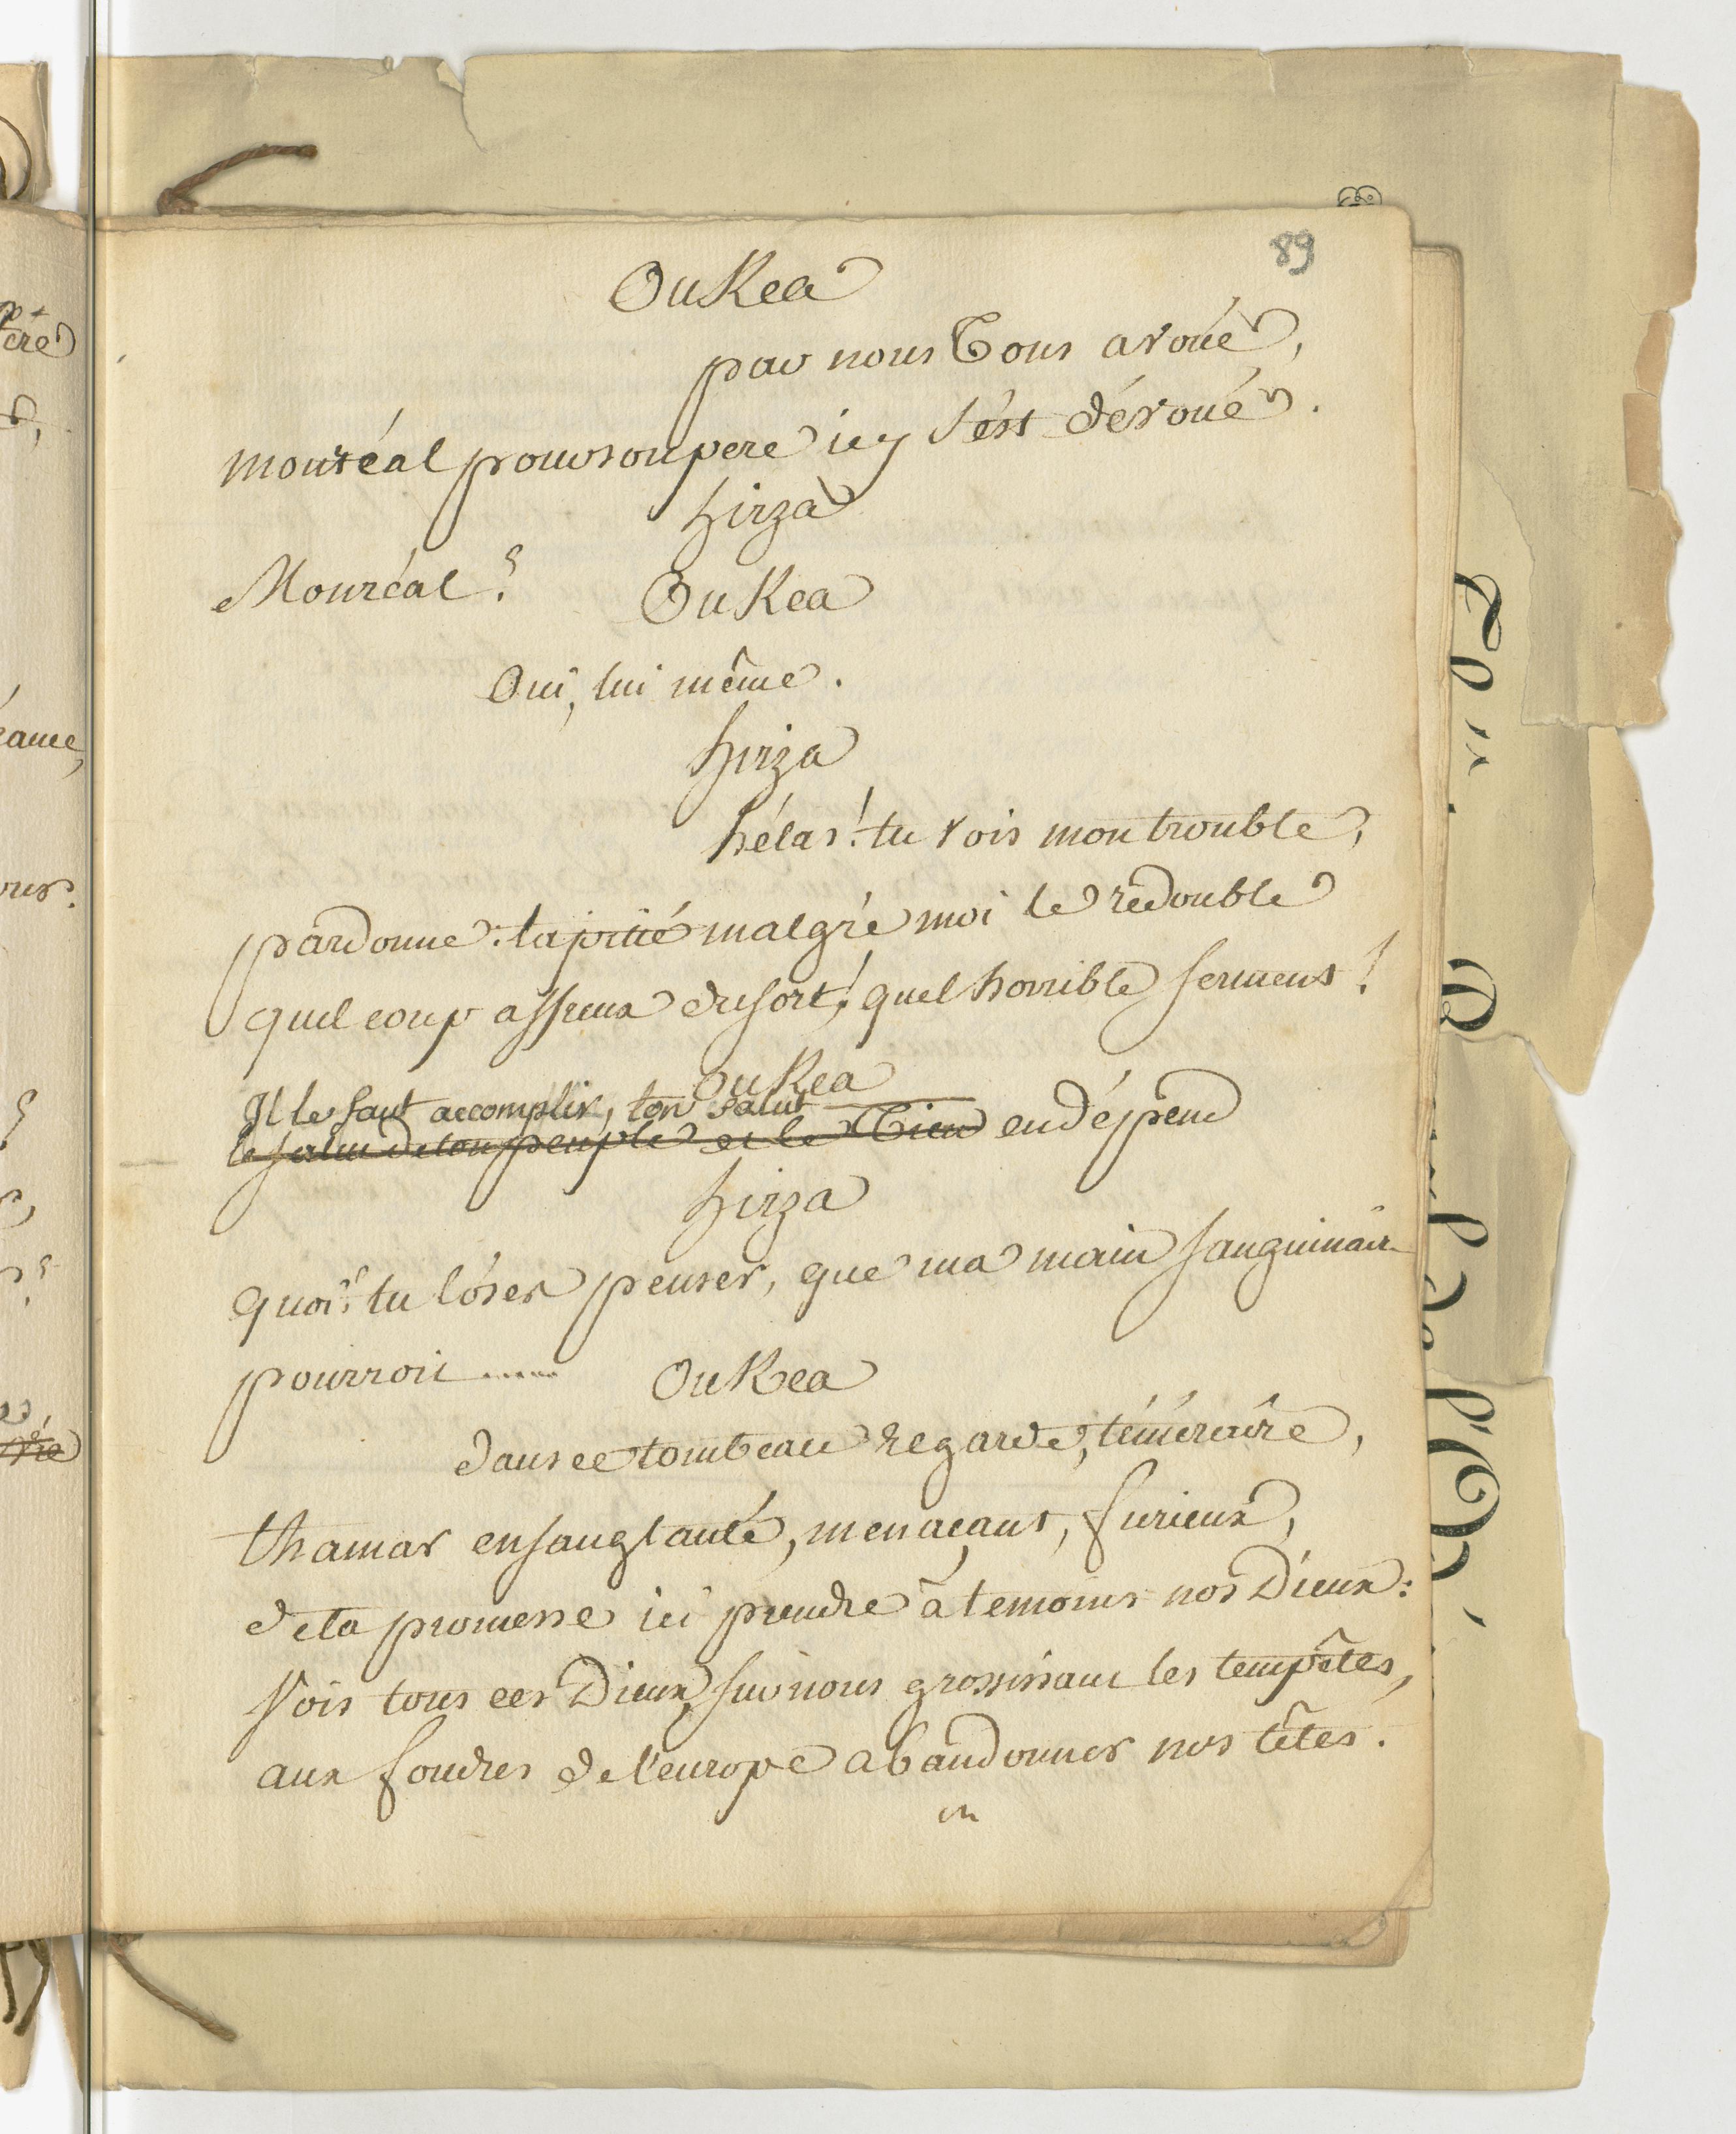 89
OuKea
par nous Tous avoué,
montréal pour son pere icy s'est dévoué.
hirza
Monréal?
OuKea
Oui, lui même.
hirza
hélas! tu vois mon trouble,
pardonne. la pitié malgré moi le redouble
quel coup affreux du sort! quel horrible serment!
OuKea
Il le faut accomplir, ton salut
le salut de ton peuple et le Tien en dépend
hirza
quoi? tu l'óses penser, que ma main sanguinair
pourroit .....
OuKea
dans ce tombeau regarde, téméraire,
thamar ensanglanté, menaçant, furieux,
de ta promesse ici prendre à temoins nos Dieux:
Vois tous ces Dieux, sur nous grossissant les tempêtes,
aux foudres de l'europe abandonner nos têtes.